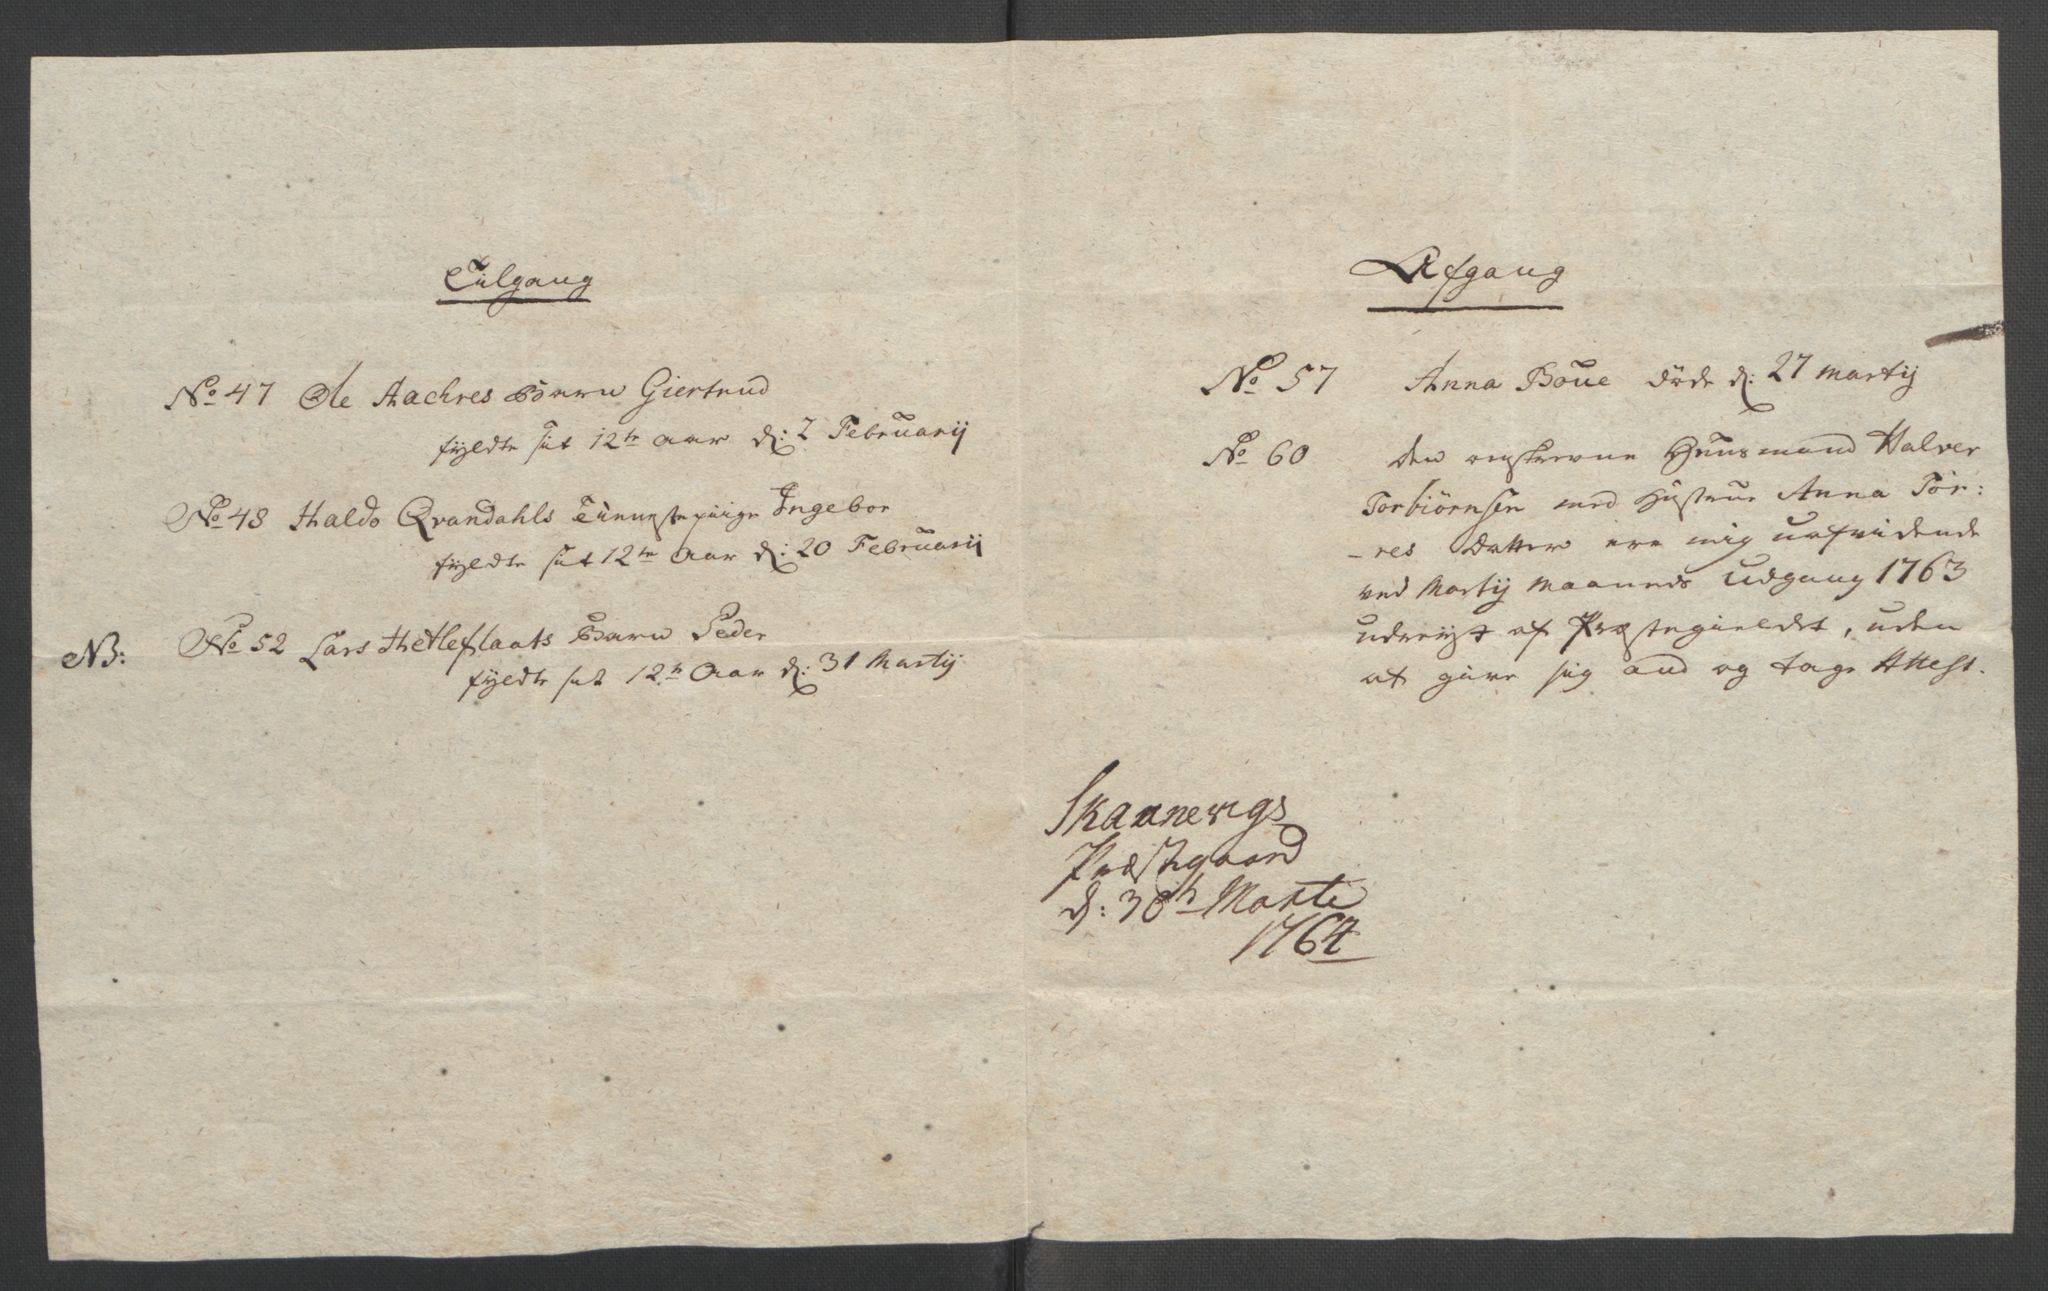 Tilgang
No 47 Ole Aachres Barn Giertrud
fyldte sit 12te Aar d: 2 Februarij
No 48 Haldo Qvandahls Tienestepiige Ingebor
fyldte sit 12te Aar d: 20 Februarij
NB: No 52 Lars Hetleflaats Barn Peder
fyldte sit 12te Aar d: 31 Martij
Afgang
No 57 Anna Boue døde d: 27 Martij
No 60 Den Huusmand Halver
Torbiørnsen med Hustrue Anna Tor:
-res Datter ere mig uafvidende
ved Martij Maaneds Udgang 1763
udreyst af Præstegieldet, uden
at give sig and og tage Attest.
Skaanevigs
Præstegaard
d: 30te Marti
1764